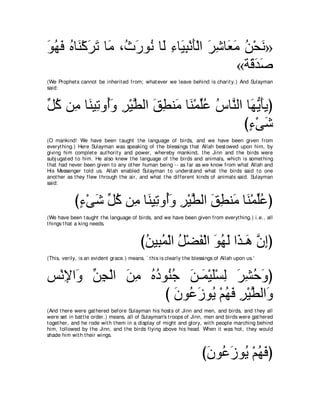 «نَحْنُ مَعَاشِرَ الْأَنْبِيَاءِ لَا نُورَثُ، مَا تَرَكْنَاهُ فَهُوَ
صَدَقَةٌ»
(We Prophets cannot be inherited from; whatever we leave behind is charity.) And Sulayman
said:
(يأَيُّهَا النَّاسُ عُلِّمْنَا مَنطِقَ الطَّيْرِ وَأُوتِينَا مِن كُلِّ
شَيْءٍ)
(O mankind! We have been taught the language of birds, and we have been given from
everything.) Here Sulayman was speaking of the blessings that Allah bestowed upon him, by
giving him complete authority and power, whereby mankind, the Jinn and the birds were
subjugated to him. He also knew the language of the birds and animals, which is something
that had never been given to any other human being -- as far as we know from what Allah and
His Messenger told us. Allah enabled Sulayman to understand what the birds said to one
another as they flew through the air, and what the different kinds of animals said. Sulayman
said:
(عُلِّمْنَا مَنطِقَ الطَّيْرِ وَأُوتِينَا مِن كُلِّ شَيْءٍ)
(We have been taught the language of birds, and we have been given from everything.) i.e., all
things that a king needs.
(إِنَّ هَـذَا لَهُوَ الْفَضْلُ الْمُبِينُ)
(This, verily, is an evident grace.) means, `this is clearly the blessings of Allah upon us.'
(وَحُشِرَ لِسْلَيْمَـنَ جُنُودُهُ مِنَ الْجِنِّ وَالإِنْسِ
وَالطَّيْرِ فَهُمْ يُوزَعُونَ )
(And there were gathered before Sulayman his hosts of Jinn and men, and birds, and they all
were set in battle order.) means, all of Sulayman's troops of Jinn, men and birds were gathered
together, and he rode with them in a display of might and glory, with people marching behind
him, followed by the Jinn, and the birds flying above his head. When it was hot, they would
shade him with their wings.
(فَهُمْ يُوزَعُونَ)